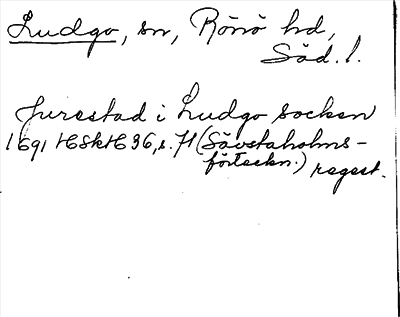 Ludgo, sn, Rönö hd,
Söd. l.
Jurestad i Ludgo socken
1691 HSkH 36, s. 71 (Sävstaholms-
förteckn.) regest.